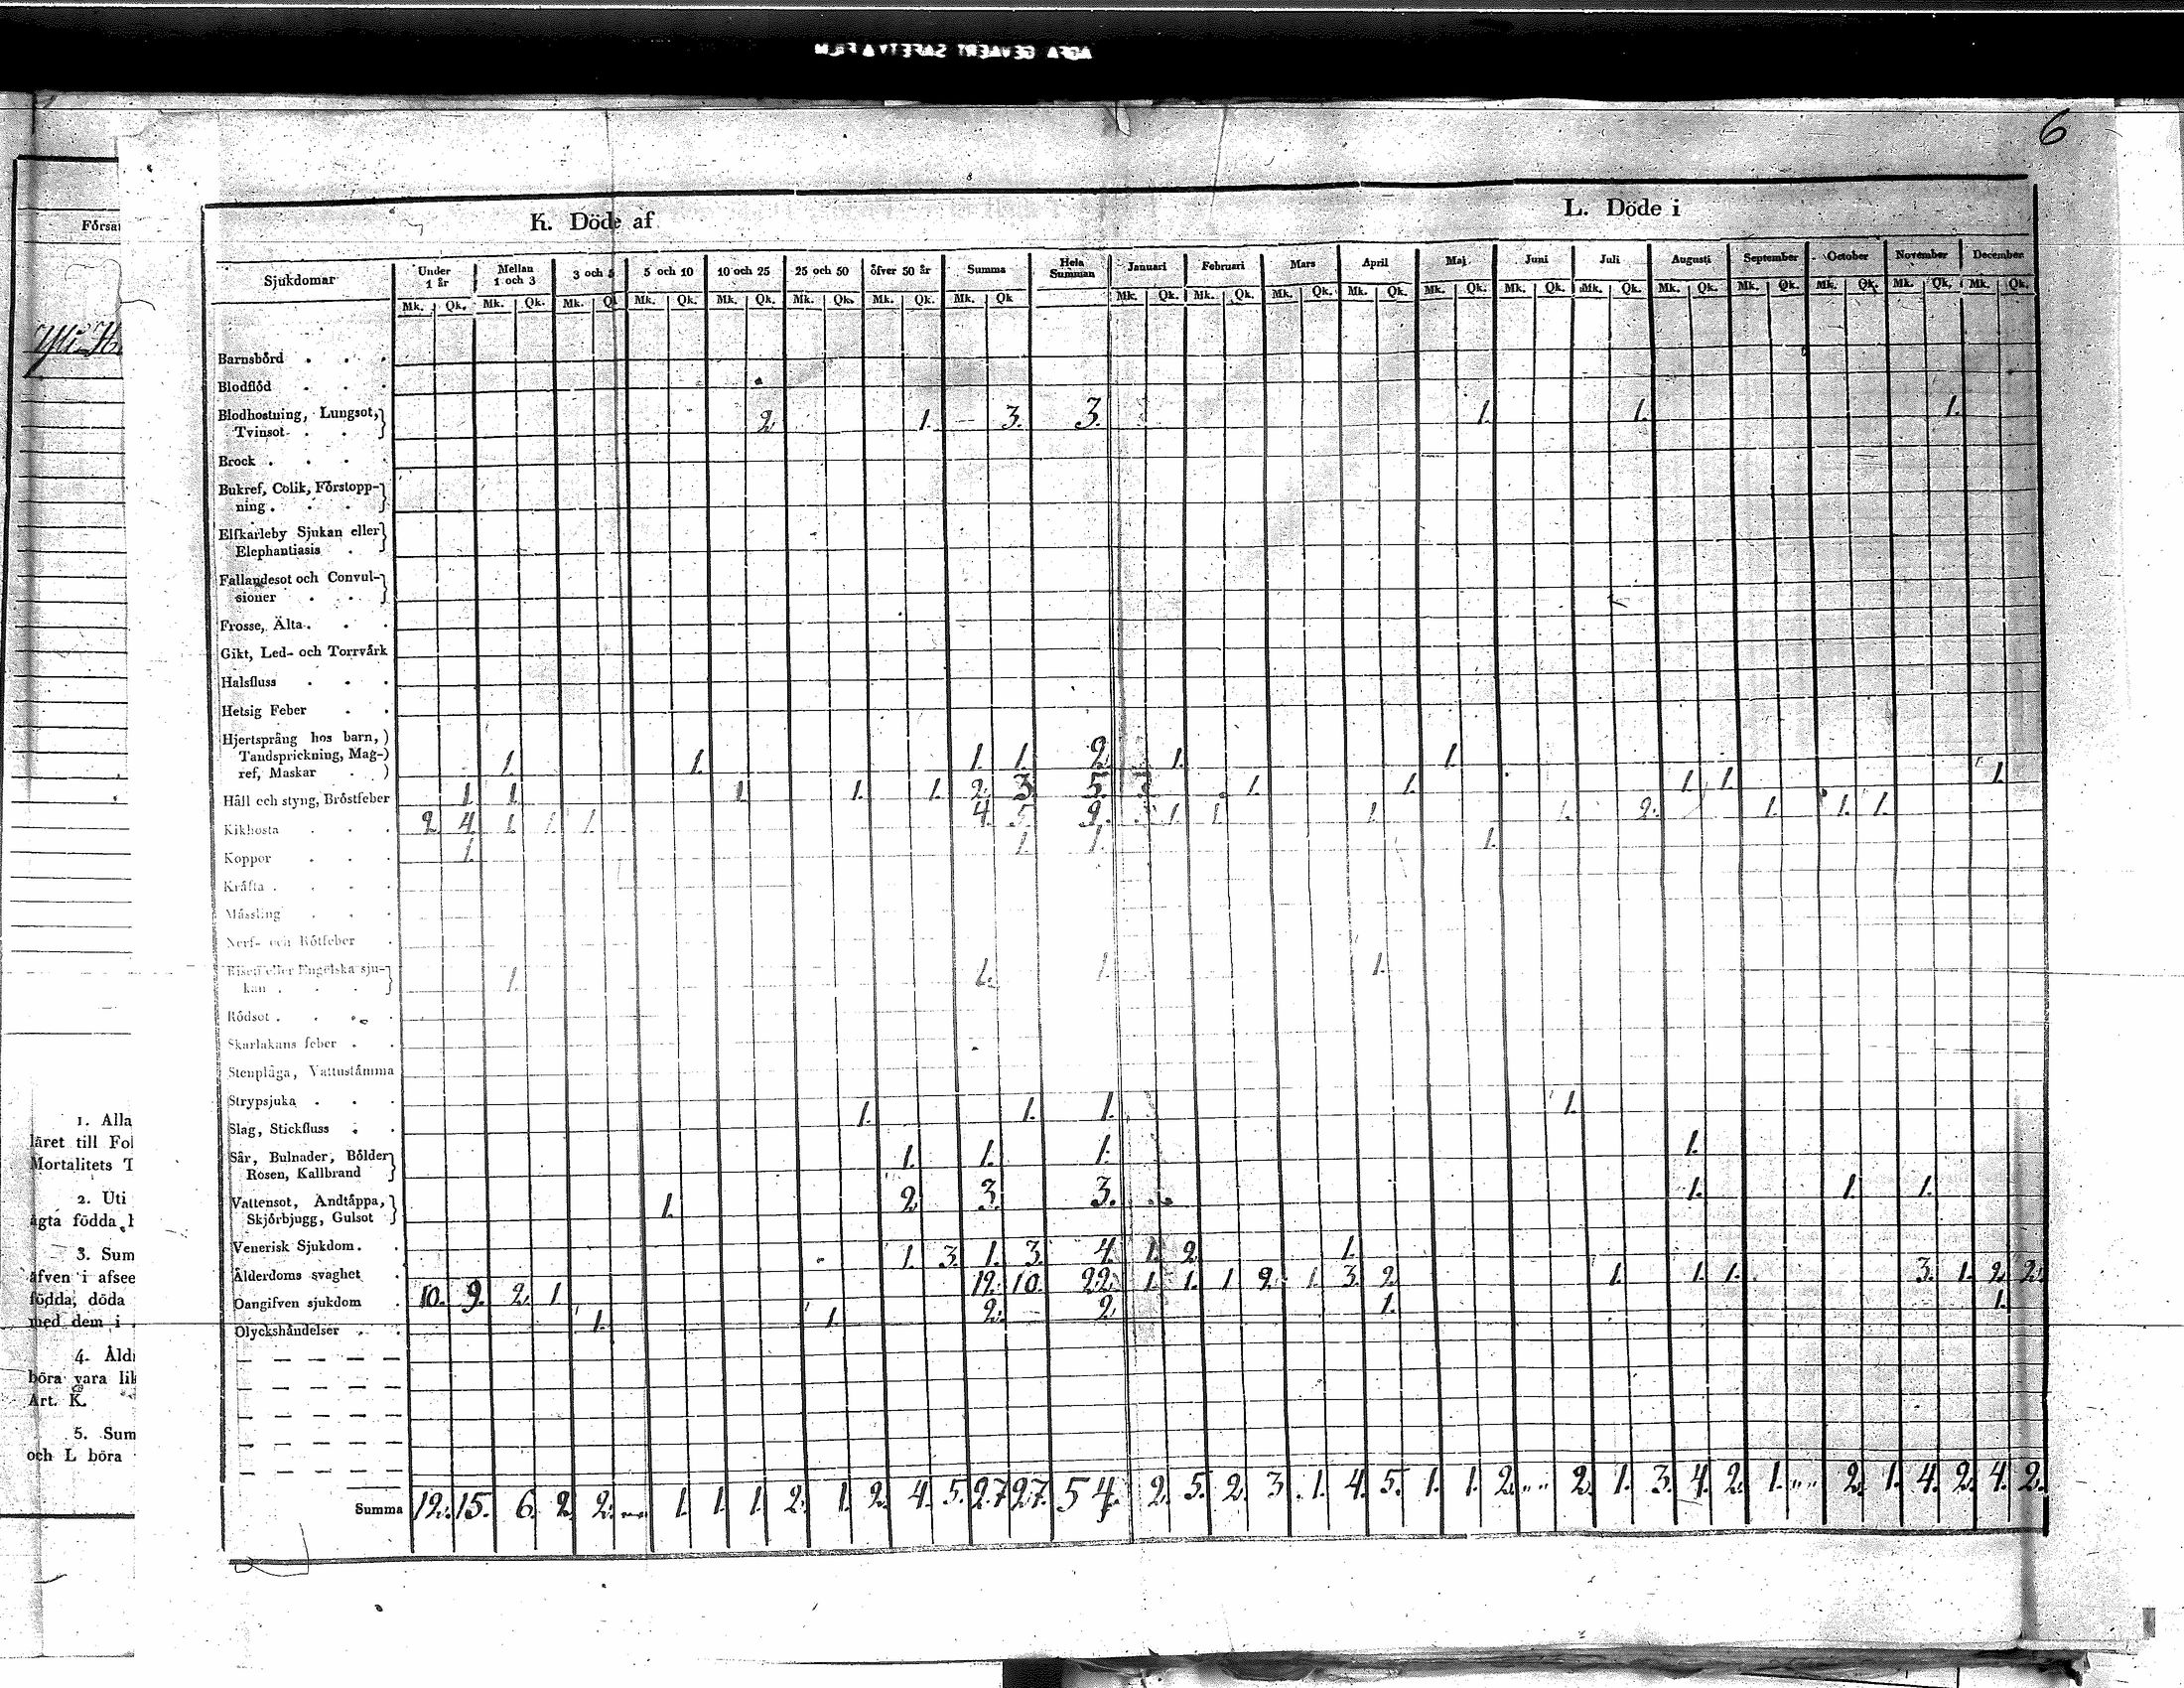 AGFA GEVAERT SAFETY FILM
6
K. Döde af
L. Döde i
Sjukdomar Under 1 år Mellan 1 och 3 3 och 5 5 och 10 10 och 25 25 och 50 öfver 50 år Summa Hela Summan Januari Februari Mars April Maj Juni Juli Augusti September October November December
Mk. Qk. Mk. Qk. Mk. Qk Mk. Qk. Mk. Qk. Mk. Qk. Mk. Qk. Mk. Qk Mk. Qk. Mk. Qk. Mk. Qk. Mk. Qk. Mk. Qk. Mk. Qk. Mk. Qk. Mk. Qk. Mk. Qk. Mk. Qk. Mk. Qk. Mk. Qk.
Barnsbörd . . .
Blodflöd . . .
Blodhostning, Lungsot,
Tvinsot . . . 2. 1. 3. 3. 1. 1. 1.
Brock . . . .
Bukref, Colik, Förstopp-
ning . . .
Elfkarleby Sjukan eller
Elephantiasis .
Fallandesot och Convul-
sioner . . .
Frosse, Älta . . .
Gikt, Led- och Torrvärk
Halsfluss . . .
Hetsig Feber . .
Hjertsprång hos barn,
Tandsprickning, Mag-
ref, Maskar . 1. 1. 1. 1. 2. 1. 1.
Håll och styng, Bröstfeber 1. 1. 1. 1. 1. 2. 3. 5. 1. 1. 1. 1. 1.
Kikhosta . . . 2. 4. 1. 1. 1. 4. 5. 9. 1. 1. 1. 1. 2. 1. 1. 1.
Koppor . . . 1. 1. 1. 1.
Kräfta . . . .
Mässling . . .
Nerf- och Rötfeber .
Risen eller Engelska sju-
kan . . . 1. 1. 1. 1.
Rödsot . . . .
Skarlakans feber . .
Stenplåga, Vattustämma
Strypsjuka . . .
Slag, Stickfluss . . 1. 1. 1. 1.
Sår, Bulnader, Bölder
Rosen, Kallbrand 1. 1. 1. 1.
Vattensot, Andtäppa,
Skjörbjugg, Gulsot 1. 2. 3. 3. 1. 1. 1.
Venerisk Sjukdom . .
Ålderdoms svaghet . 1. 3. 1. 3. 4. 1. 2. 1.
Oangifven sjukdom . 10. 9. 2. 1. 12. 10. 22. 1. 1. 1. 2. 1. 3. 2. 1. 1. 1. 3. 1. 2. 2.
Olyckshändelser . . 1. 1. 2. 2. 1. 1.
Summa 12. 15. 6. 2. 2. 1. 1. 1. 2. 1. 2. 4. 5. 27. 27. 54. 2. 5. 2. 3. 1. 4. 5. 1. 1. 2. 2. 1. 3. 4. 2. 1. 2. 1. 4. 2. 4. 2.
1. Alla
läret till
Mortalitets
2. Uti
ägta födda,
3. Sum
äfven i
födda, döda
med dem i
4.
böra vara
Art. K.
5. Sum
och L böra